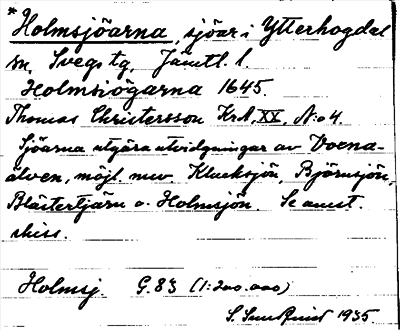 * Holmsjöarna, sjöar i Ytterhogdal
sn, Svegs tg, Jämtl. l.
Holmsiögarna 1645.
Thomas Christersson KrA, XX, N:o 4.
Sjöarna utgöra utvidgningar av Voena-
älven, möjl. mw Klucksjön, Björnsjön,
Blästertjärn o. Holmsjön. Se
skiss.
Holmsj. G. 83 (1:200.000)
S. 1935.